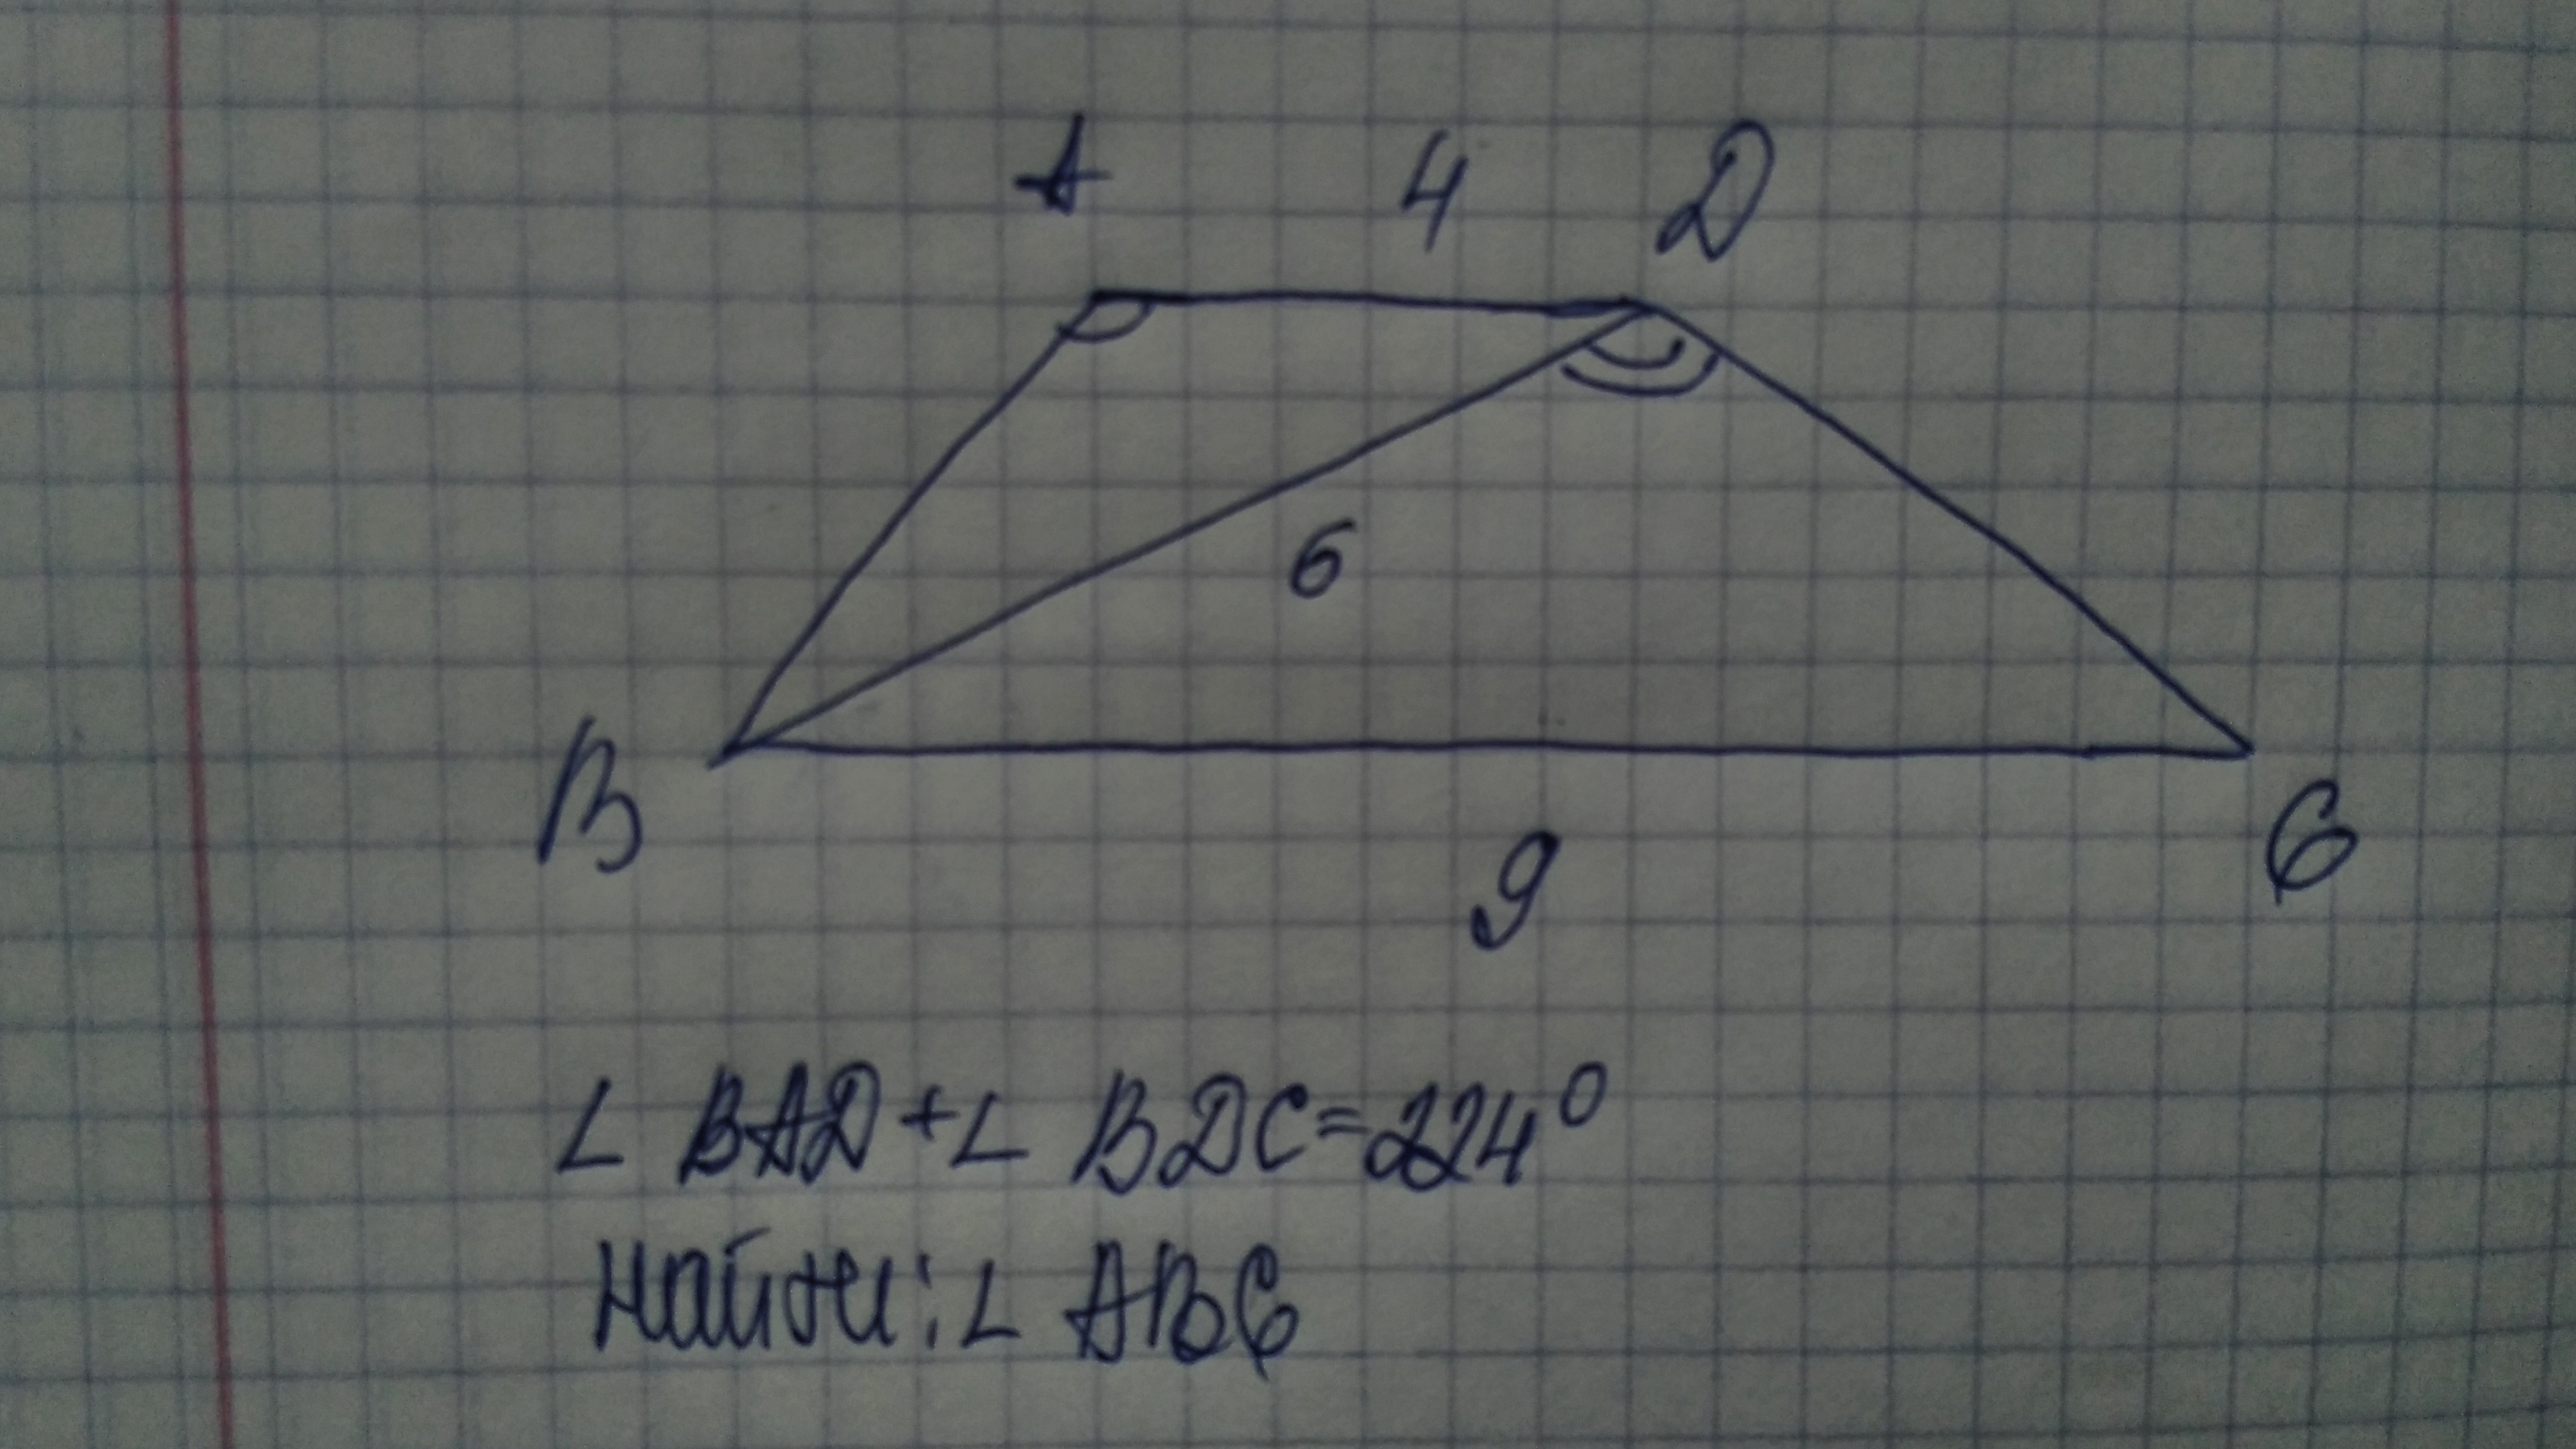 A 4 D
6
B C
9
∠ BAD + ∠ BDC = 224°
Найти: ∠ ABC